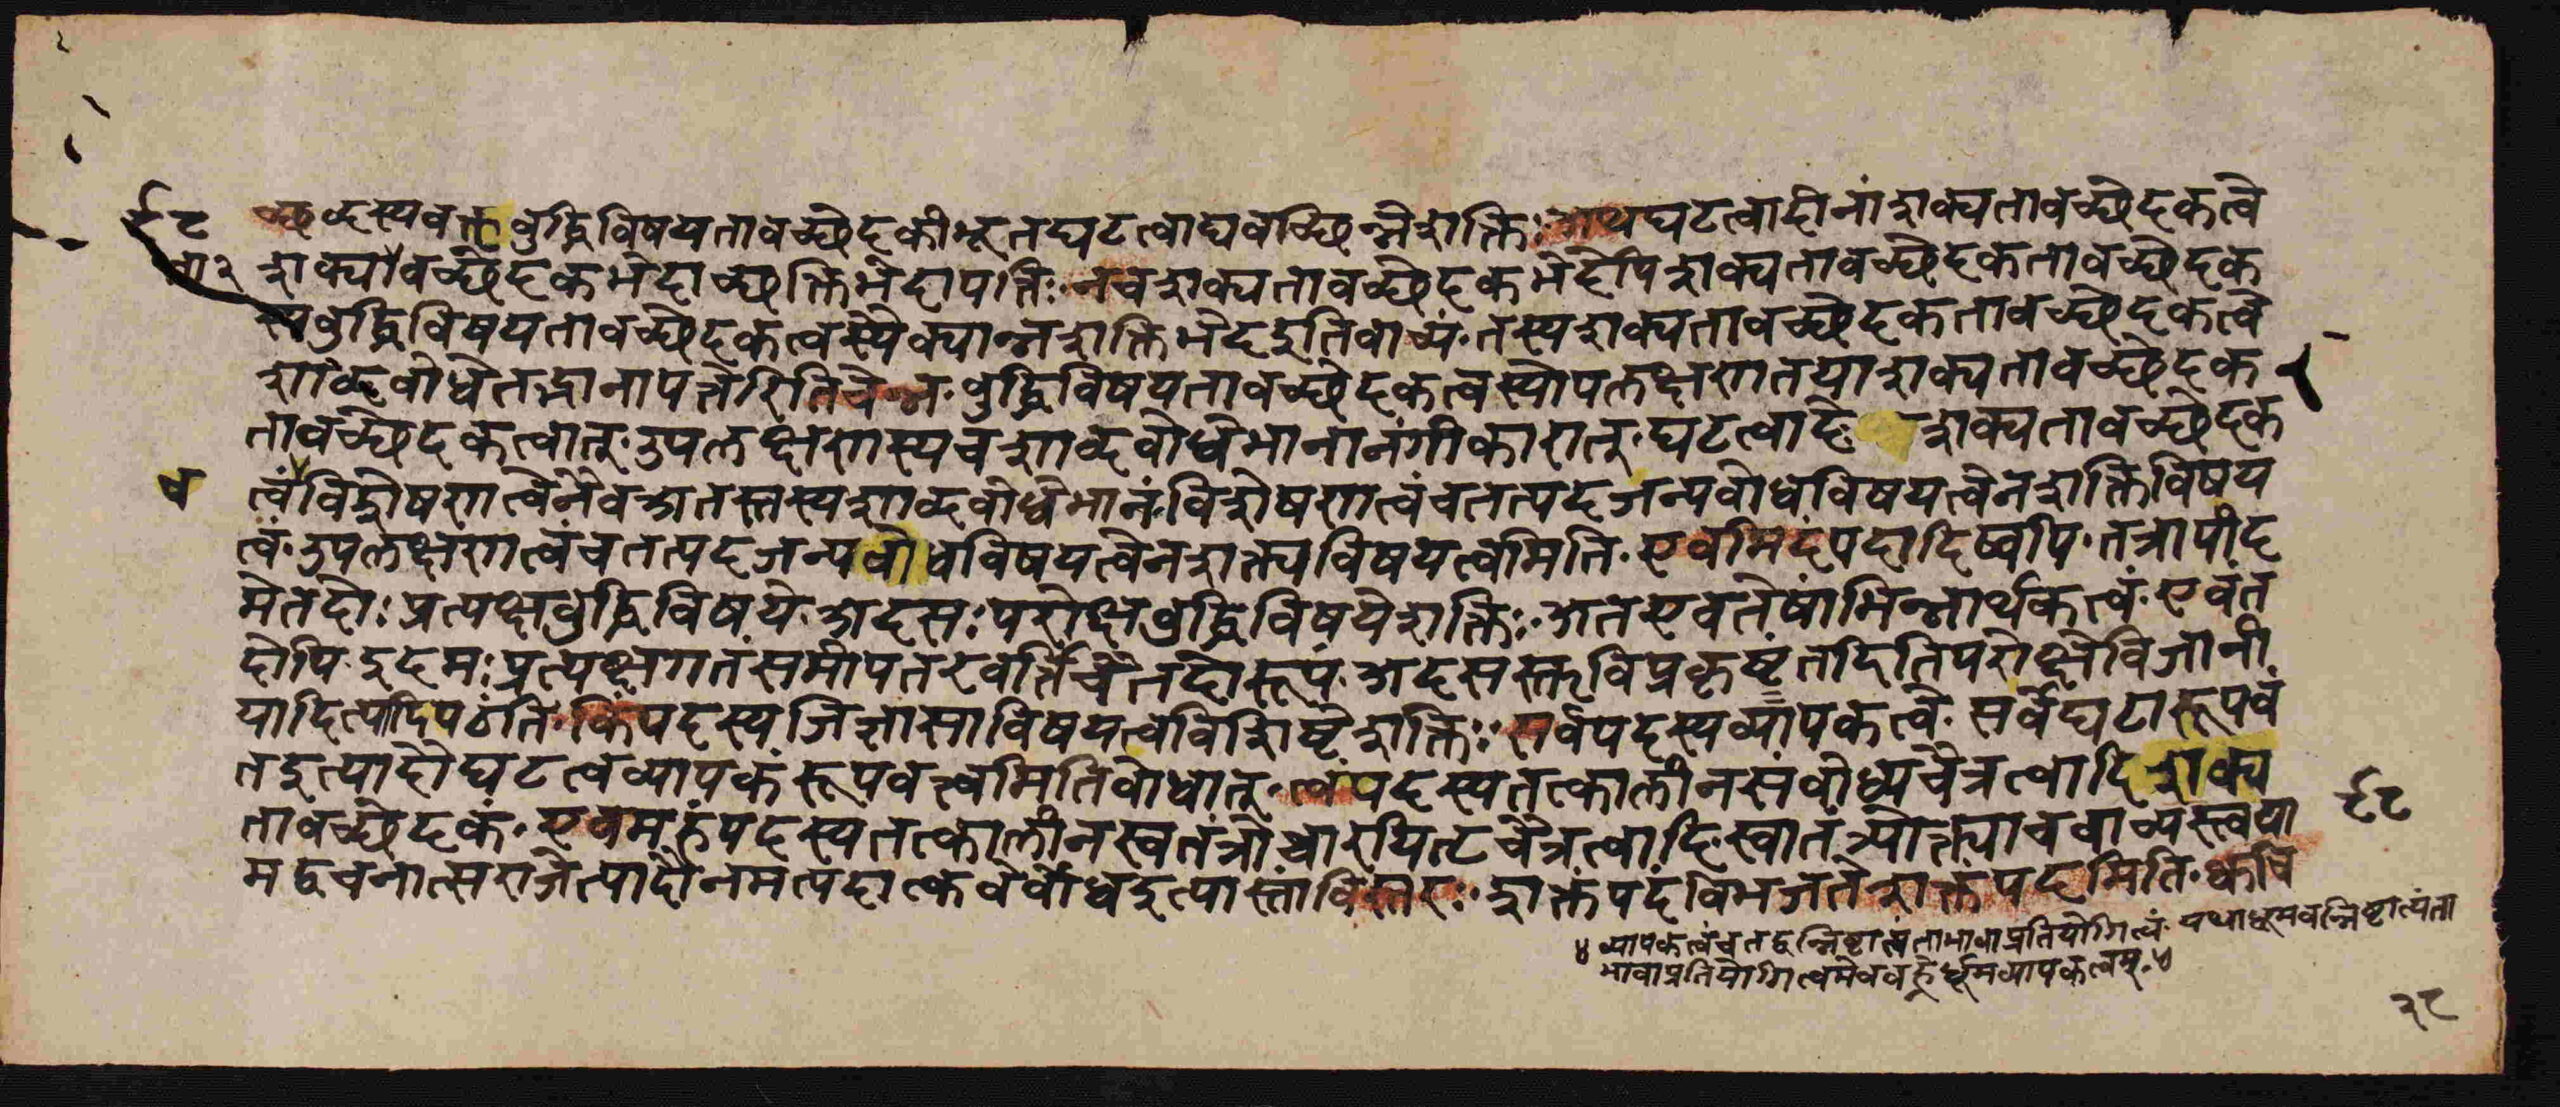 च्छब्दस्य वक्तृबुद्धिविषयतावच्छेदकीभूतघटत्वाद्यवच्छिन्ने शक्तिः अथ घटत्वादीनां शक्यतावच्छेदकत्वे
शक्यावच्छेदकभेदाच्छक्तिभेदापत्तिः न च शक्यतावच्छेदकभेदेपि शक्यतावच्छेदकतावच्छेदक
स्य बुद्धिविषयतावच्छेदकत्वस्यैक्यान्न शक्तिभेद इति वाच्यं तस्य शक्यतावच्छेदकतावच्छेदकत्वे
शाब्दबोधे तद्भानापत्तेरिति चेन्न बुद्धिविषयतावच्छेदकत्वस्योपलक्षणतया शक्यतावच्छेदक
तावच्छेदकत्वात् उपलक्षणस्य च शाब्दबोधे भानानंगीकारात् घटत्वादेः शक्यतावच्छेदक
त्वं विशेषणत्वेनैव अतस्तस्य शाब्दबोधे भानं विशेषणत्वं च तत्पदजन्यबोधविषयत्वेन शक्तिविषय
त्वं उपलक्षणत्वं च तत्पदजन्यबोधविषयत्वेन शक्त्यविषयत्वमिति एवमिदंपदादिष्वपि तत्रापीद
मेतदोः प्रत्यक्षबुद्धिविषये अदसः परोक्षबुद्धिविषये शक्तिः अत एव तेषां भिन्नार्थकत्वं एवं त
दोपि इदमः प्रत्यक्षगतं समीपतरवर्ति चैतदो रूपं अदसस्तु विप्रकृष्टं तदिति परोक्षे विजानी
यादित्यादि पठंति किंपदस्य जिज्ञासाविषयत्वविशिष्टे शक्तिः सर्वपदस्य व्यापकत्वे सर्वे घटा रूपवं
त इत्यादौ घटत्वव्यापकं रूपवत्त्वमिति बोधात् त्वंपदस्य तत्कालीनसंबोध्यचैत्रत्वादि शक्य
तावच्छेदकं एवमहंपदस्य तत्कालीनस्वतंत्रोच्चारयितृचैत्रत्वादि स्वातंत्र्योक्त्या च वाच्यस्त्वया
मद्वचनात्स राजेत्यादौ नमत्पदात्कवेर्बोध इत्यास्तां विस्तरः शक्तं पदं विभजते शक्तं पदमिति क्वचि
४ व्यापकत्वं च तद्वन्निष्ठात्यंताभावाप्रतियोगित्वं यथा धूमवन्निष्ठात्यंता
भावाप्रतियोगित्वमेव वह्नेर्धूमव्यापकत्वम् ४
ता २
व
२८